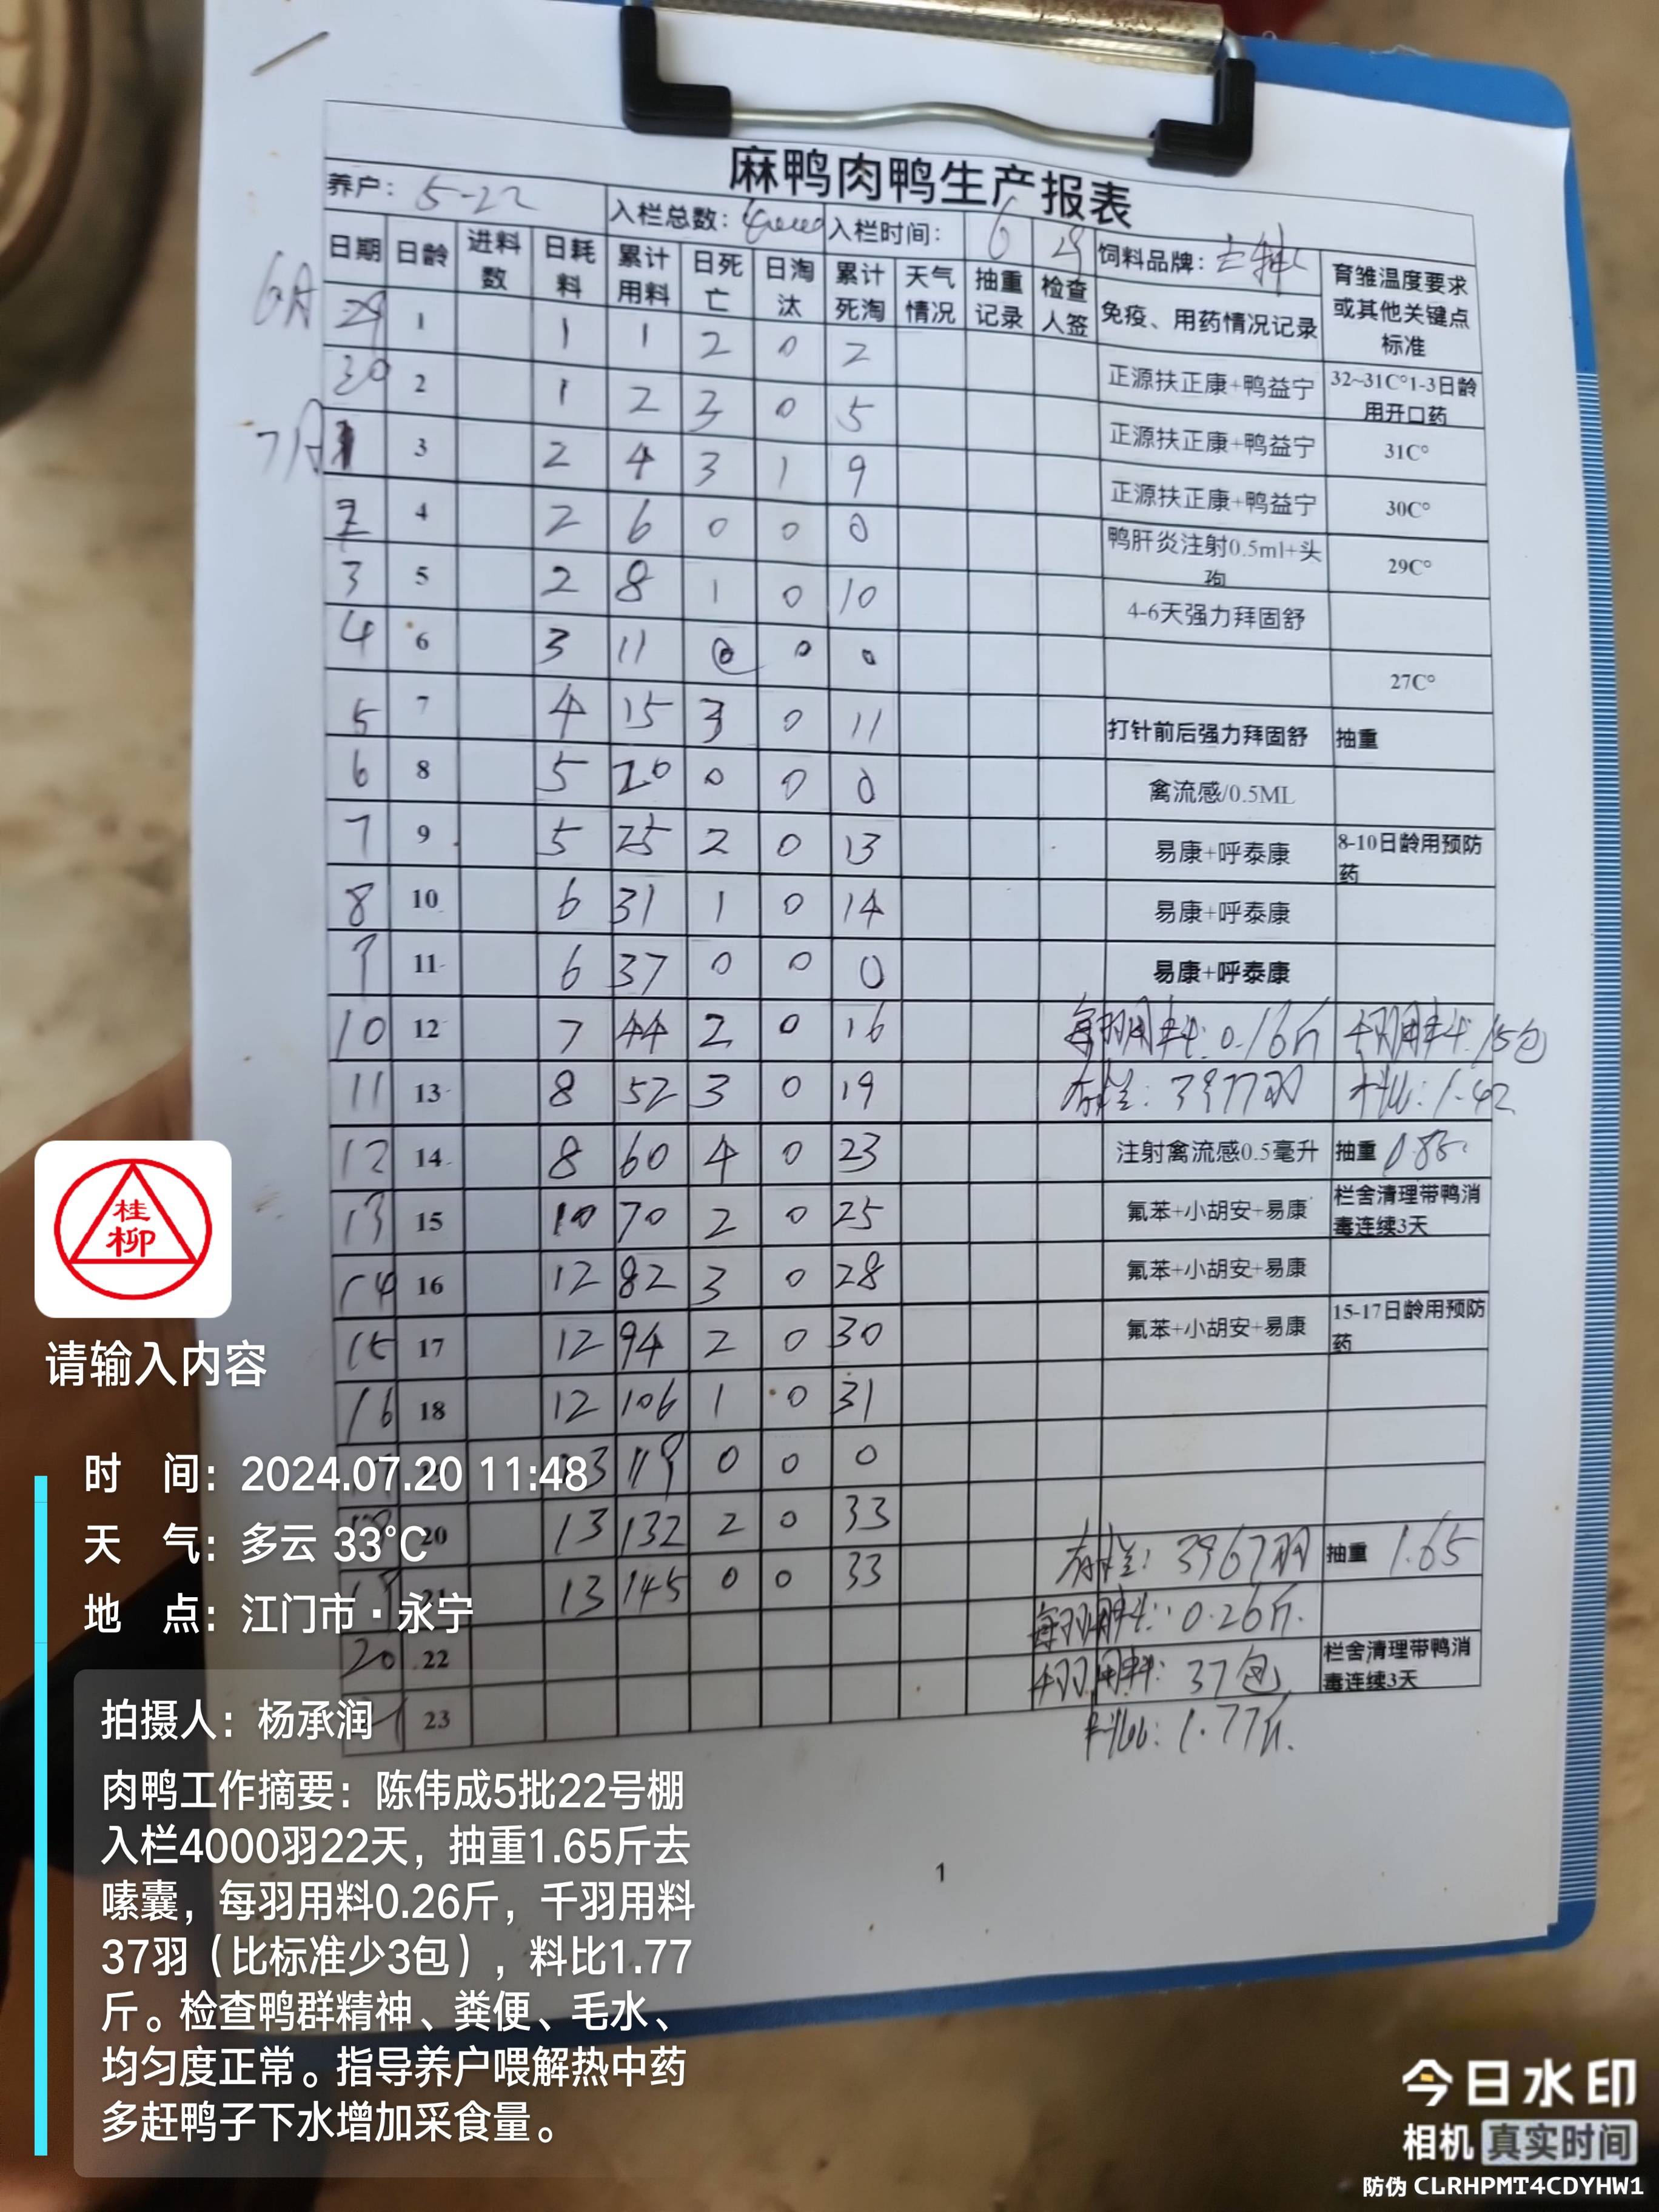 麻鸭肉鸭生产报表
养户：5-22 入栏总数：4000 入栏时间：6 29 饲料品牌：
日期 日龄 进料数 日耗料 累计用料 日死亡 日淘汰 累计死淘 天气情况 抽重记录 检查人签 免疫、用药情况记录 育雏温度要求或其他关键点标准
6月 29 1 1 1 2 0 2 正源扶正康+鸭益宁 32~31C°1-3日龄用开口药
30 2 1 2 3 0 5 正源扶正康+鸭益宁 31C°
7月 1 3 2 4 3 1 9 正源扶正康+鸭益宁 30C°
2 4 2 6 0 0 0 鸭肝炎注射0.5ml+头孢 29C°
3 5 2 8 1 0 10 4-6天强力拜固舒
4 6 3 11 0 0 0 27C°
5 7 4 15 3 0 11 打针前后强力拜固舒 抽重
6 8 5 20 0 0 0 禽流感/0.5ML
7 9 5 25 2 0 13 易康+呼泰康 8-10日龄用预防药
8 10 6 31 1 0 14 易康+呼泰康
9 11 6 37 0 0 0 易康+呼泰康
10 12 7 44 2 0 16 每羽用料：0.16斤 千羽用料：15包
11 13 8 52 3 0 19 存栏：3977羽 料比：1.42
12 14 8 60 4 0 23 注射禽流感0.5毫升 抽重 0.85
13 15 10 70 2 0 25 氟苯+小胡安+易康 栏舍清理带鸭消毒连续3天
14 16 12 82 3 0 28 氟苯+小胡安+易康
15 17 12 94 2 0 30 氟苯+小胡安+易康 15-17日龄用预防药
16 18 12 106 1 0 31
17 19 13 119 0 0 0
18 20 13 132 2 0 33 存栏：3967羽 抽重 1.65
19 21 13 145 0 0 33 每羽用料：0.26斤.
20 22 千羽用料：37包 栏舍清理带鸭消毒连续3天
23 料比：1.77斤.
1
桂柳
请输入内容
时 间：2024.07.20 11:48
天 气：多云 33℃
地 点：江门市·永宁
拍摄人：杨承润
肉鸭工作摘要：陈伟成5批22号棚
入栏4000羽22天，抽重1.65斤去
嗉囊，每羽用料0.26斤，千羽用料
37羽（比标准少3包），料比1.77
斤。检查鸭群精神、粪便、毛水、
均匀度正常。指导养户喂解热中药
多赶鸭子下水增加采食量。
今日水印
相机 真实时间
防伪 CLRHPMT4CDYHW1